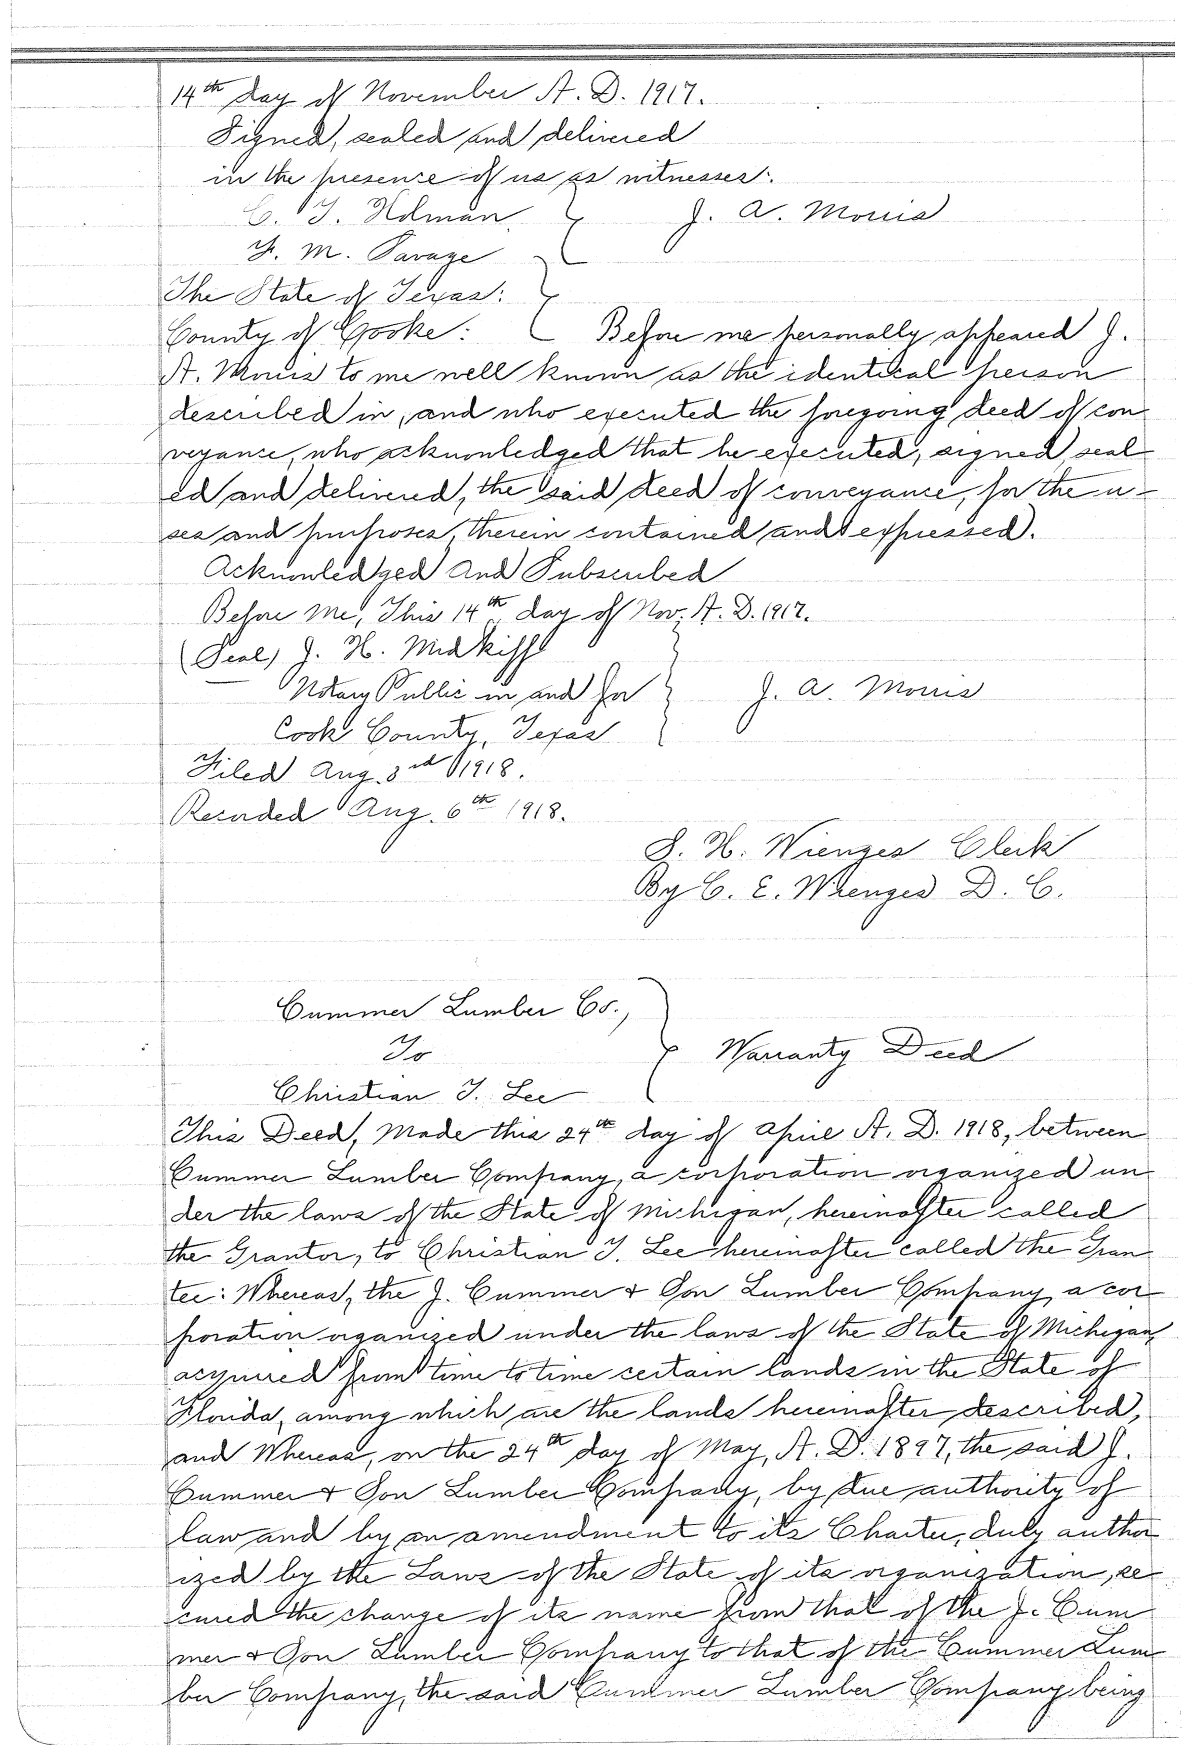 14th day of November A. D. 1917.
Signed, sealed and delivered
in the presence of us as witnesses:
C. T. Holman J. A. Morris
F. M. Savage
The State of Texas:
County of Cooke: Before me personally appeared J.
A. Morris to me well known as the identical person
described in, and who executed the foregoing deed of con
veyance, who acknowledged that he executed, signed, seal
ed and delivered, the said deed of conveyance, for the u-
ses and purposes, therein contained and expressed.
Acknowledged and Subscribed
Before Me, This 14th day of Nov. A. D. 1917.
(Seal) J. H. Midkiff
Notary Public in and for J. A. Morris
Cook County, Texas
Filed Aug. 3rd 1918.
Recorded Aug. 6th 1918.
S. H. Wienges Clerk
By C. E. Wienges D. C.
Cummer Lumber Co.,
To Warranty Deed
Christian T. Lee
This Deed, Made this 24th day of April A. D. 1918, between
Cummer Lumber Company, a corporation organized un
der the laws of the State of Michigan, hereinafter called
the Grantor, to Christian T. Lee hereinafter called the Gran
tee: Whereas, the J. Cummer & Son Lumber Company, a cor
poration organized under the laws of the State of Michigan,
acquired from time to time certain lands in the State of
Florida, among which are the lands hereinafter described,
and Whereas, on the 24th day of May, A. D. 1897, the said J.
Cummer & Son Lumber Company, by due authority of
law and by an amendment to its Charter, duly author
ized by the Laws of the State of its organization, se
cured the change of its name from that of the J. Cum
mer & Son Lumber Company to that of the Cummer Lum
ber Company, the said Cummer Lumber Company being